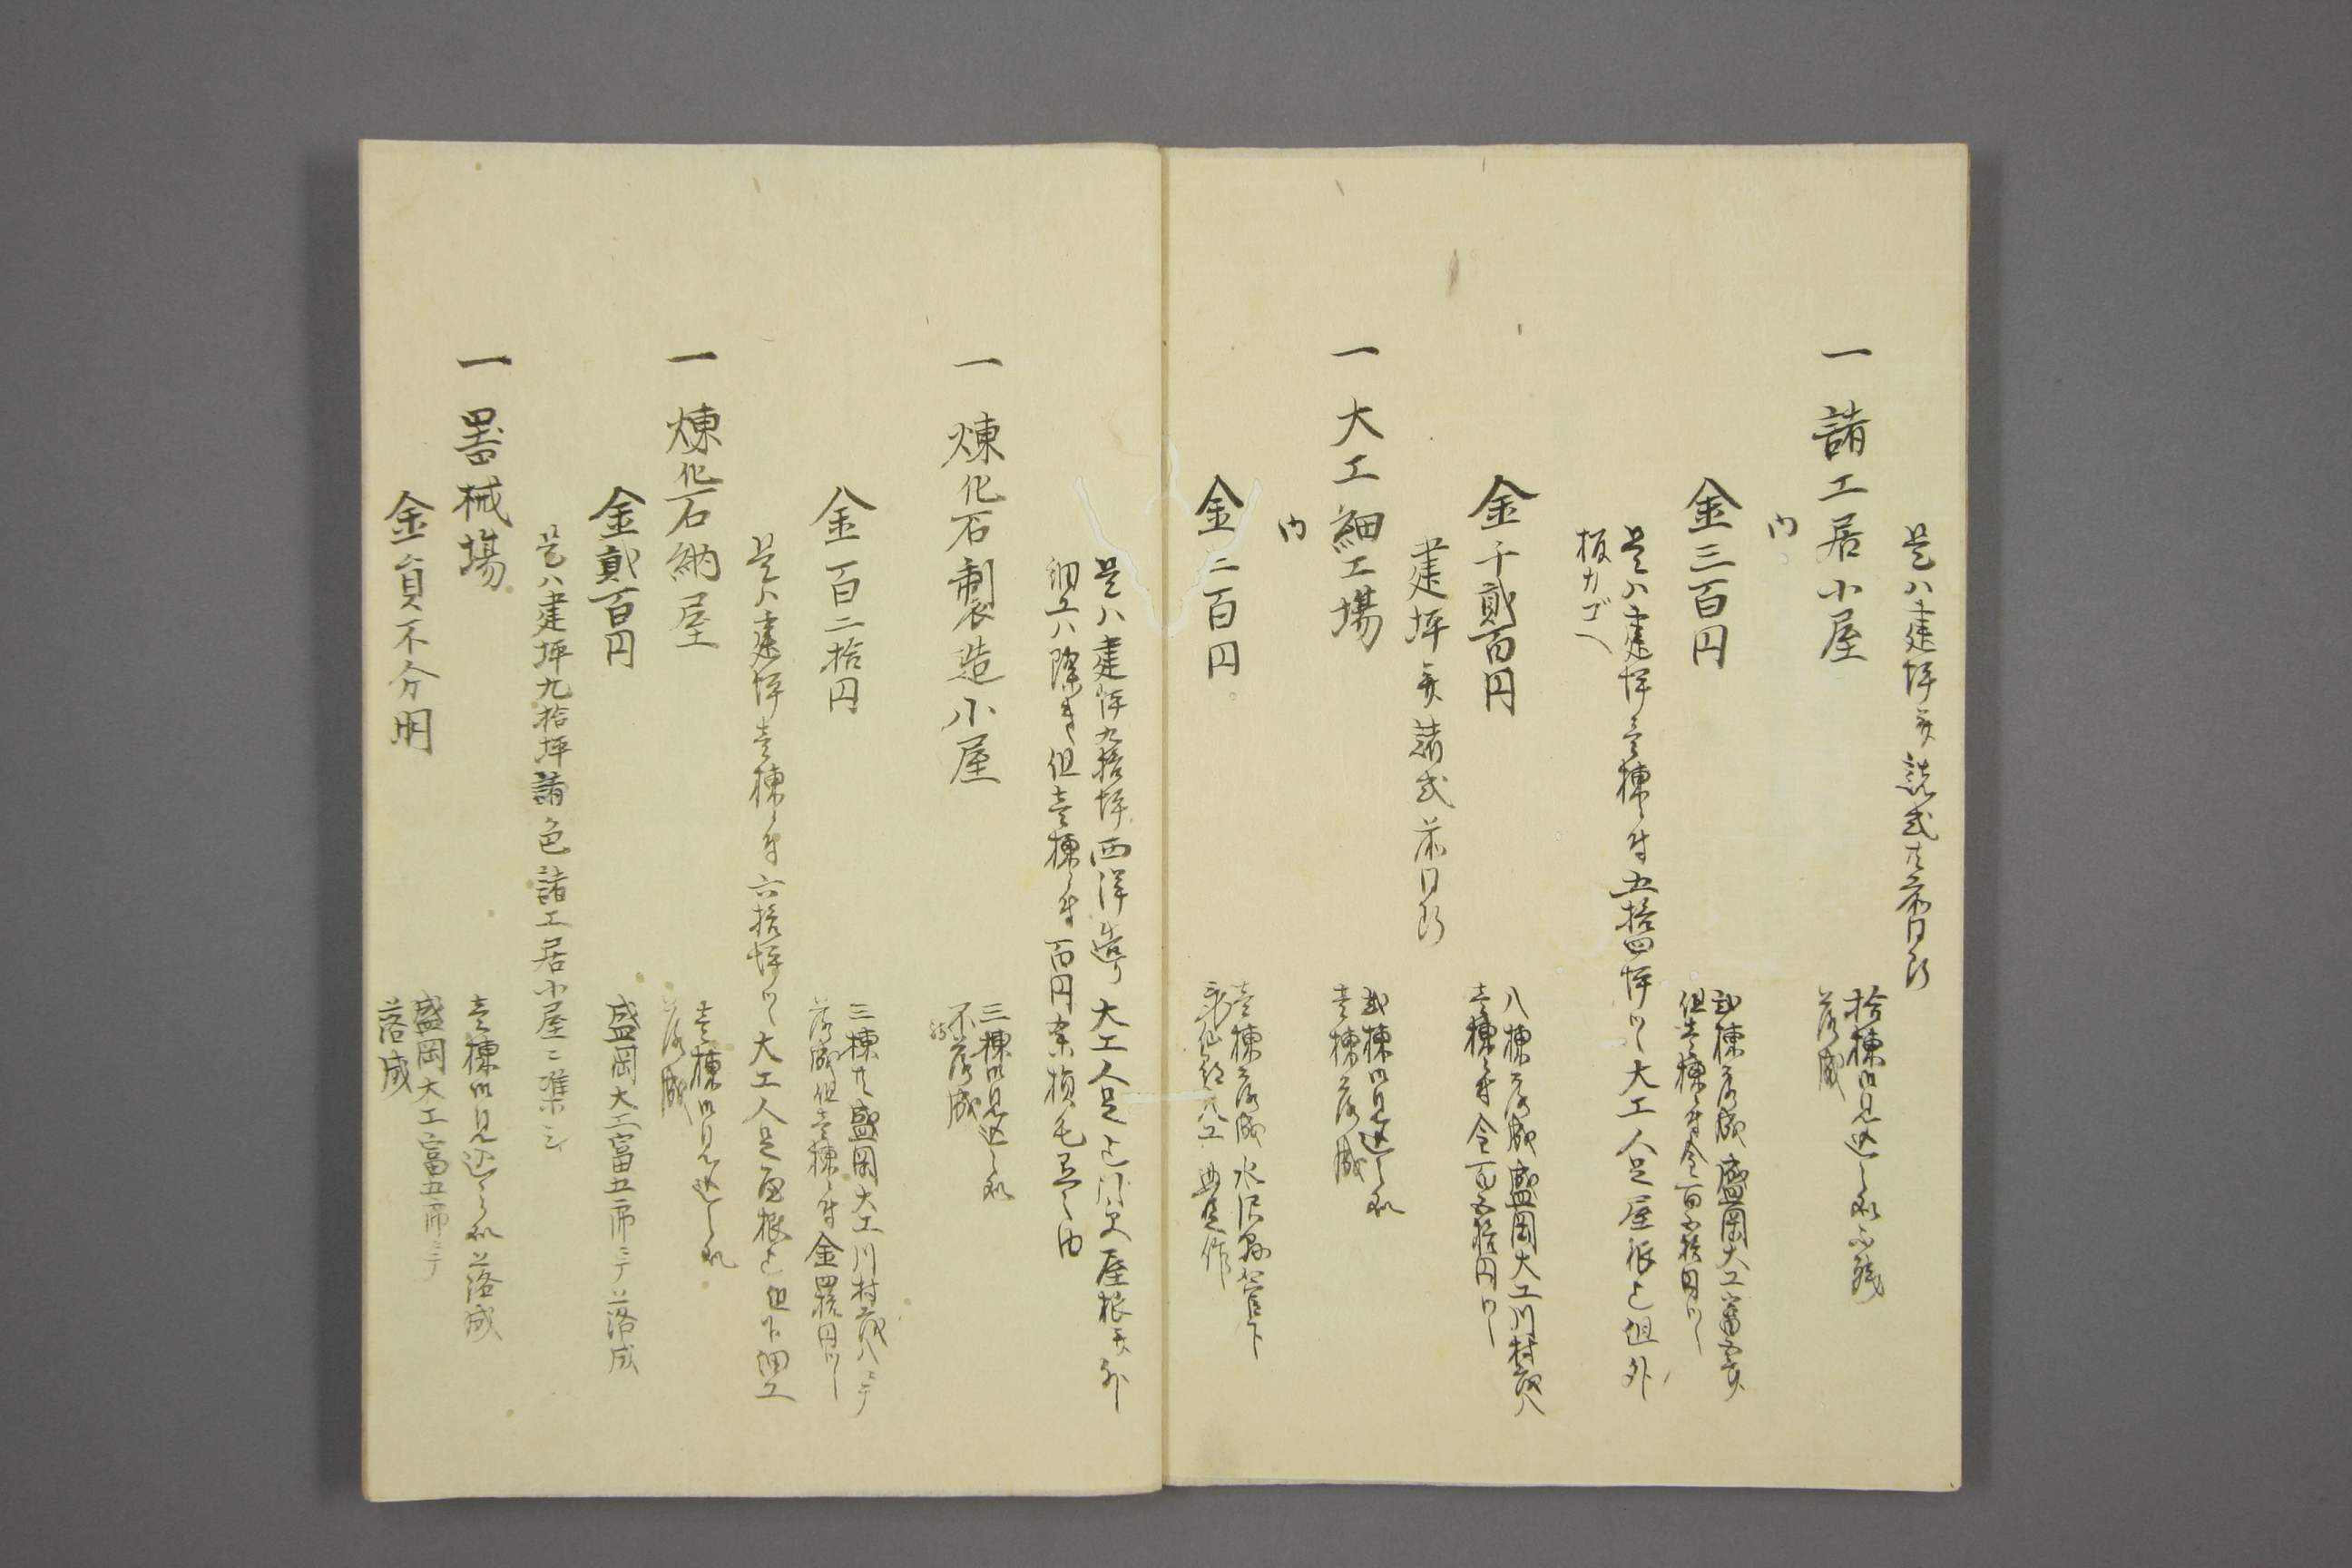 是ハ建坪并諸式共前同断
一 諸工居小屋
拾棟御見込之処不残
落成
内
金三百円
弐棟落成盛岡大工富五郎
但壱棟ニ付金百五拾円ツヽ
是ハ建坪壱棟ニ付五拾四坪ツヽ大工人足屋根迄但外
板カゴヘ
金千貮百円
八棟落成盛岡大工川村茂八
壱棟ニ付金百五拾円ツヽ
建坪并諸式前同断
一 大工細工場
弐棟御見込之処
壱棟落成
内
金二百円
壱棟落成水沢縣管下
気仙郡大工
是ハ建坪九拾坪西洋造り大工人足迄 屋根并外
細工ハ除き但壱棟ニ付百円余損毛
一 煉化石製造小屋
三棟御見込之処
不残落成
金百二拾円
三棟共盛岡大工川村茂八ニテ
落成但壱棟ニ付金四拾円ツヽ
是ハ建坪壱棟ニ付六拾坪ツヽ大工人足屋根迄但下細工
一 煉化石納屋
壱棟御見込之処
落成
金貮百円
盛岡大工富五郎ニテ落成
是ハ建坪九拾坪諸色諸工居小屋ニ準シ
一 器械場
壱棟御見込之処落成
金員不分明
盛岡大工富五郎ニテ
落成